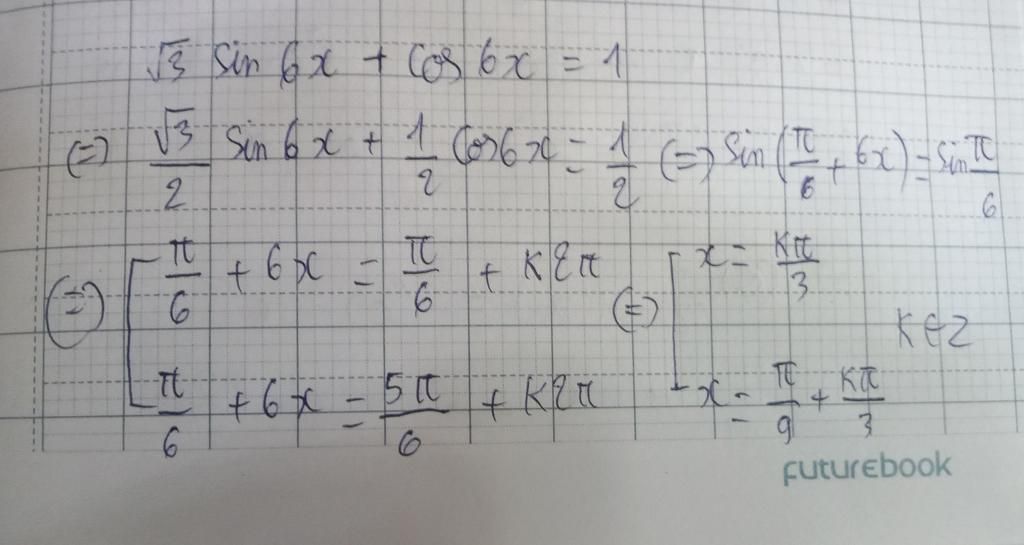 √3 sin 6x + cos 6x = 1
(=) √3/2 sin 6x + 1/2 cos6x = 1/2 (=) sin(π/6 + 6x) = sin π/6
(=) [ π/6 + 6x = π/6 + k2π (=) [ x = kπ/3
k∈Z
π/6 + 6x = 5π/6 + k2π x = π/9 + kπ/3
FUTUREBOOK